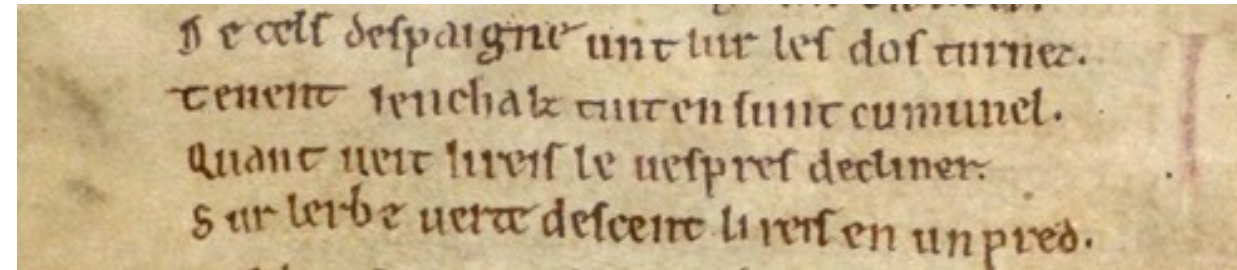 De cels despaigne unt lur les dos turnez.
tenent lenchalz tuit en sunt cumunel.
Quant ueit li reis le uespres decliner.
Sur lerbe uerte descent li reis en un pred.